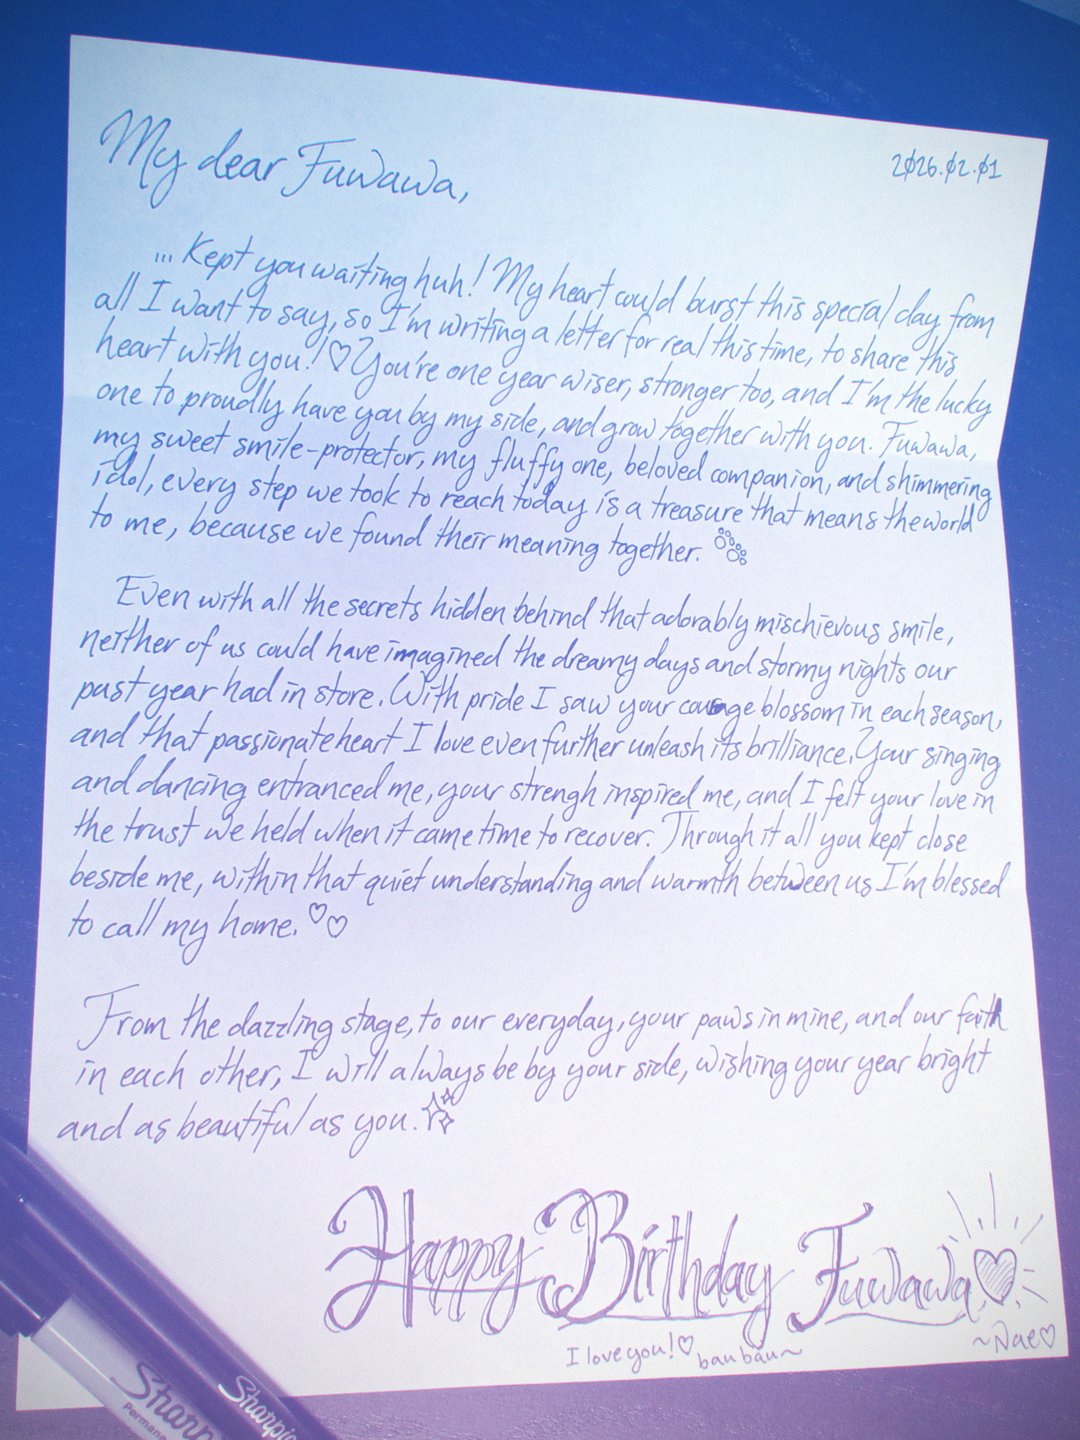 2026.02.01
My dear Fuwawa,
... Kept you waiting huh! My heart could burst this special day from
all I want to say, so I'm writing a letter for real this time, to share this
heart with you!♡ You're one year wiser, stronger too, and I'm the lucky
one to proudly have you by my side, and grow together with you. Fuwawa,
my sweet smile-protector, my fluffy one, beloved companion, and shimmering
idol, every step we took to reach today is a treasure that means the world
to me, because we found their meaning together.
Even with all the secrets hidden behind that adorably mischievous smile,
neither of us could have imagined the dreamy days and stormy nights our
past year had in store. With pride I saw your courage blossom in each season,
and that passionate heart I love even further unleash its brilliance. Your singing
and dancing entranced me, your strengh inspired me, and I felt your love in
the trust we held when it came time to recover. Through it all you kept close
beside me, within that quiet understanding and warmth between us I'm blessed
to call my home. ♡♡
From the dazzling stage, to our everyday, your paws in mine, and our faith
in each other, I will always be by your side, wishing your year bright
and as beautiful as you.
Happy Birthday Fuwawa♡
I love you!♡ bau bau~
~Nae♡
Sharpie
Permane
Sharpie